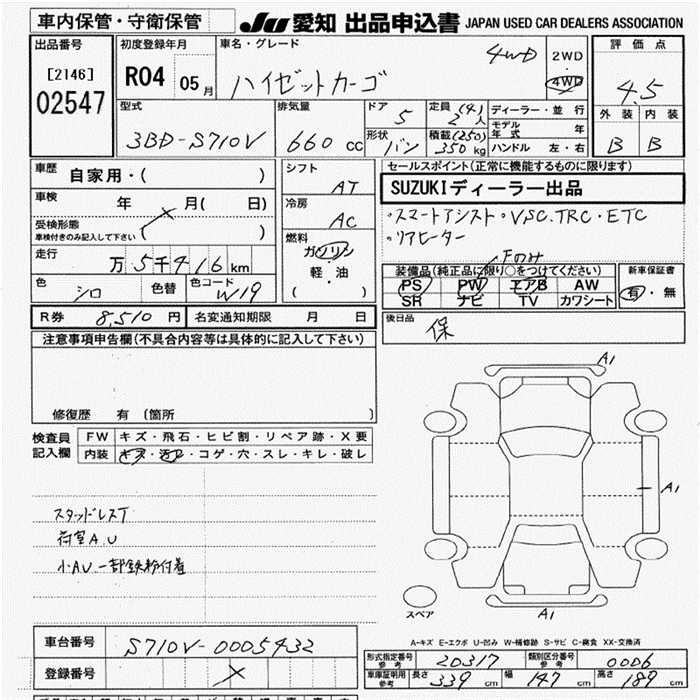 車内保管・守衛保管
JU 愛知 出品申込書 JAPAN USED CAR DEALERS ASSOCIATION
出品番号 [2146] 02547
初度登録年月 R04 05月
車名・グレード ハイゼットカーゴ 4WD
2WD・4WD
評価点 4.5
外装 内装
B B
型式 3BD-S710V
排気量 660 cc
ドア 5
形状 バン
定員 (4) 2人
積載 (250) 350 kg
ディーラー・並行
モデル年式 年
ハンドル 左・右
車歴 自家用・( )
車検 年 月( 日)
受検形態 ( )
車検付きのみ記入して下さい
走行 万5千416km
色 シロ 色替 色コード W19
シフト AT
冷房 AC
燃料 ガソリン
軽・油
( )
セールスポイント(正常に機能するものに限ります)
SUZUKIディーラー出品
・スマートアシスト・VSC.TRC・ETC
・リアヒーター
Fのみ
装備品(純正品に限り○をつけてください)
PS PW エアB AW
SR ナビ TV カワシート
新車保証書
有・無
R券 8,510円 名変通知期限 月 日
後日品 保
注意事項申告欄(不具合内容等は具体的に記入して下さい)
修復歴 有 〔箇所 〕
検査員記入欄
FW キズ・飛石・ヒビ割・リペア跡・X要
内装 キズ・汚れ・コゲ・穴・スレ・キレ・破レ
スタッドレスT
荷室A.U
小AU 一部鉄粉付着
A1
A1
A1
スペア
A-キズ E-エクボ U-凹み W-補修跡 S-サビ C-腐食 XX-交換済
車台番号 S710V-0005432
登録番号
形式指定番号 参考 20317 類別区分番号 参考 0006
車庫証明用 参考 長さ 339 cm 幅 147 cm 高さ 189 cm